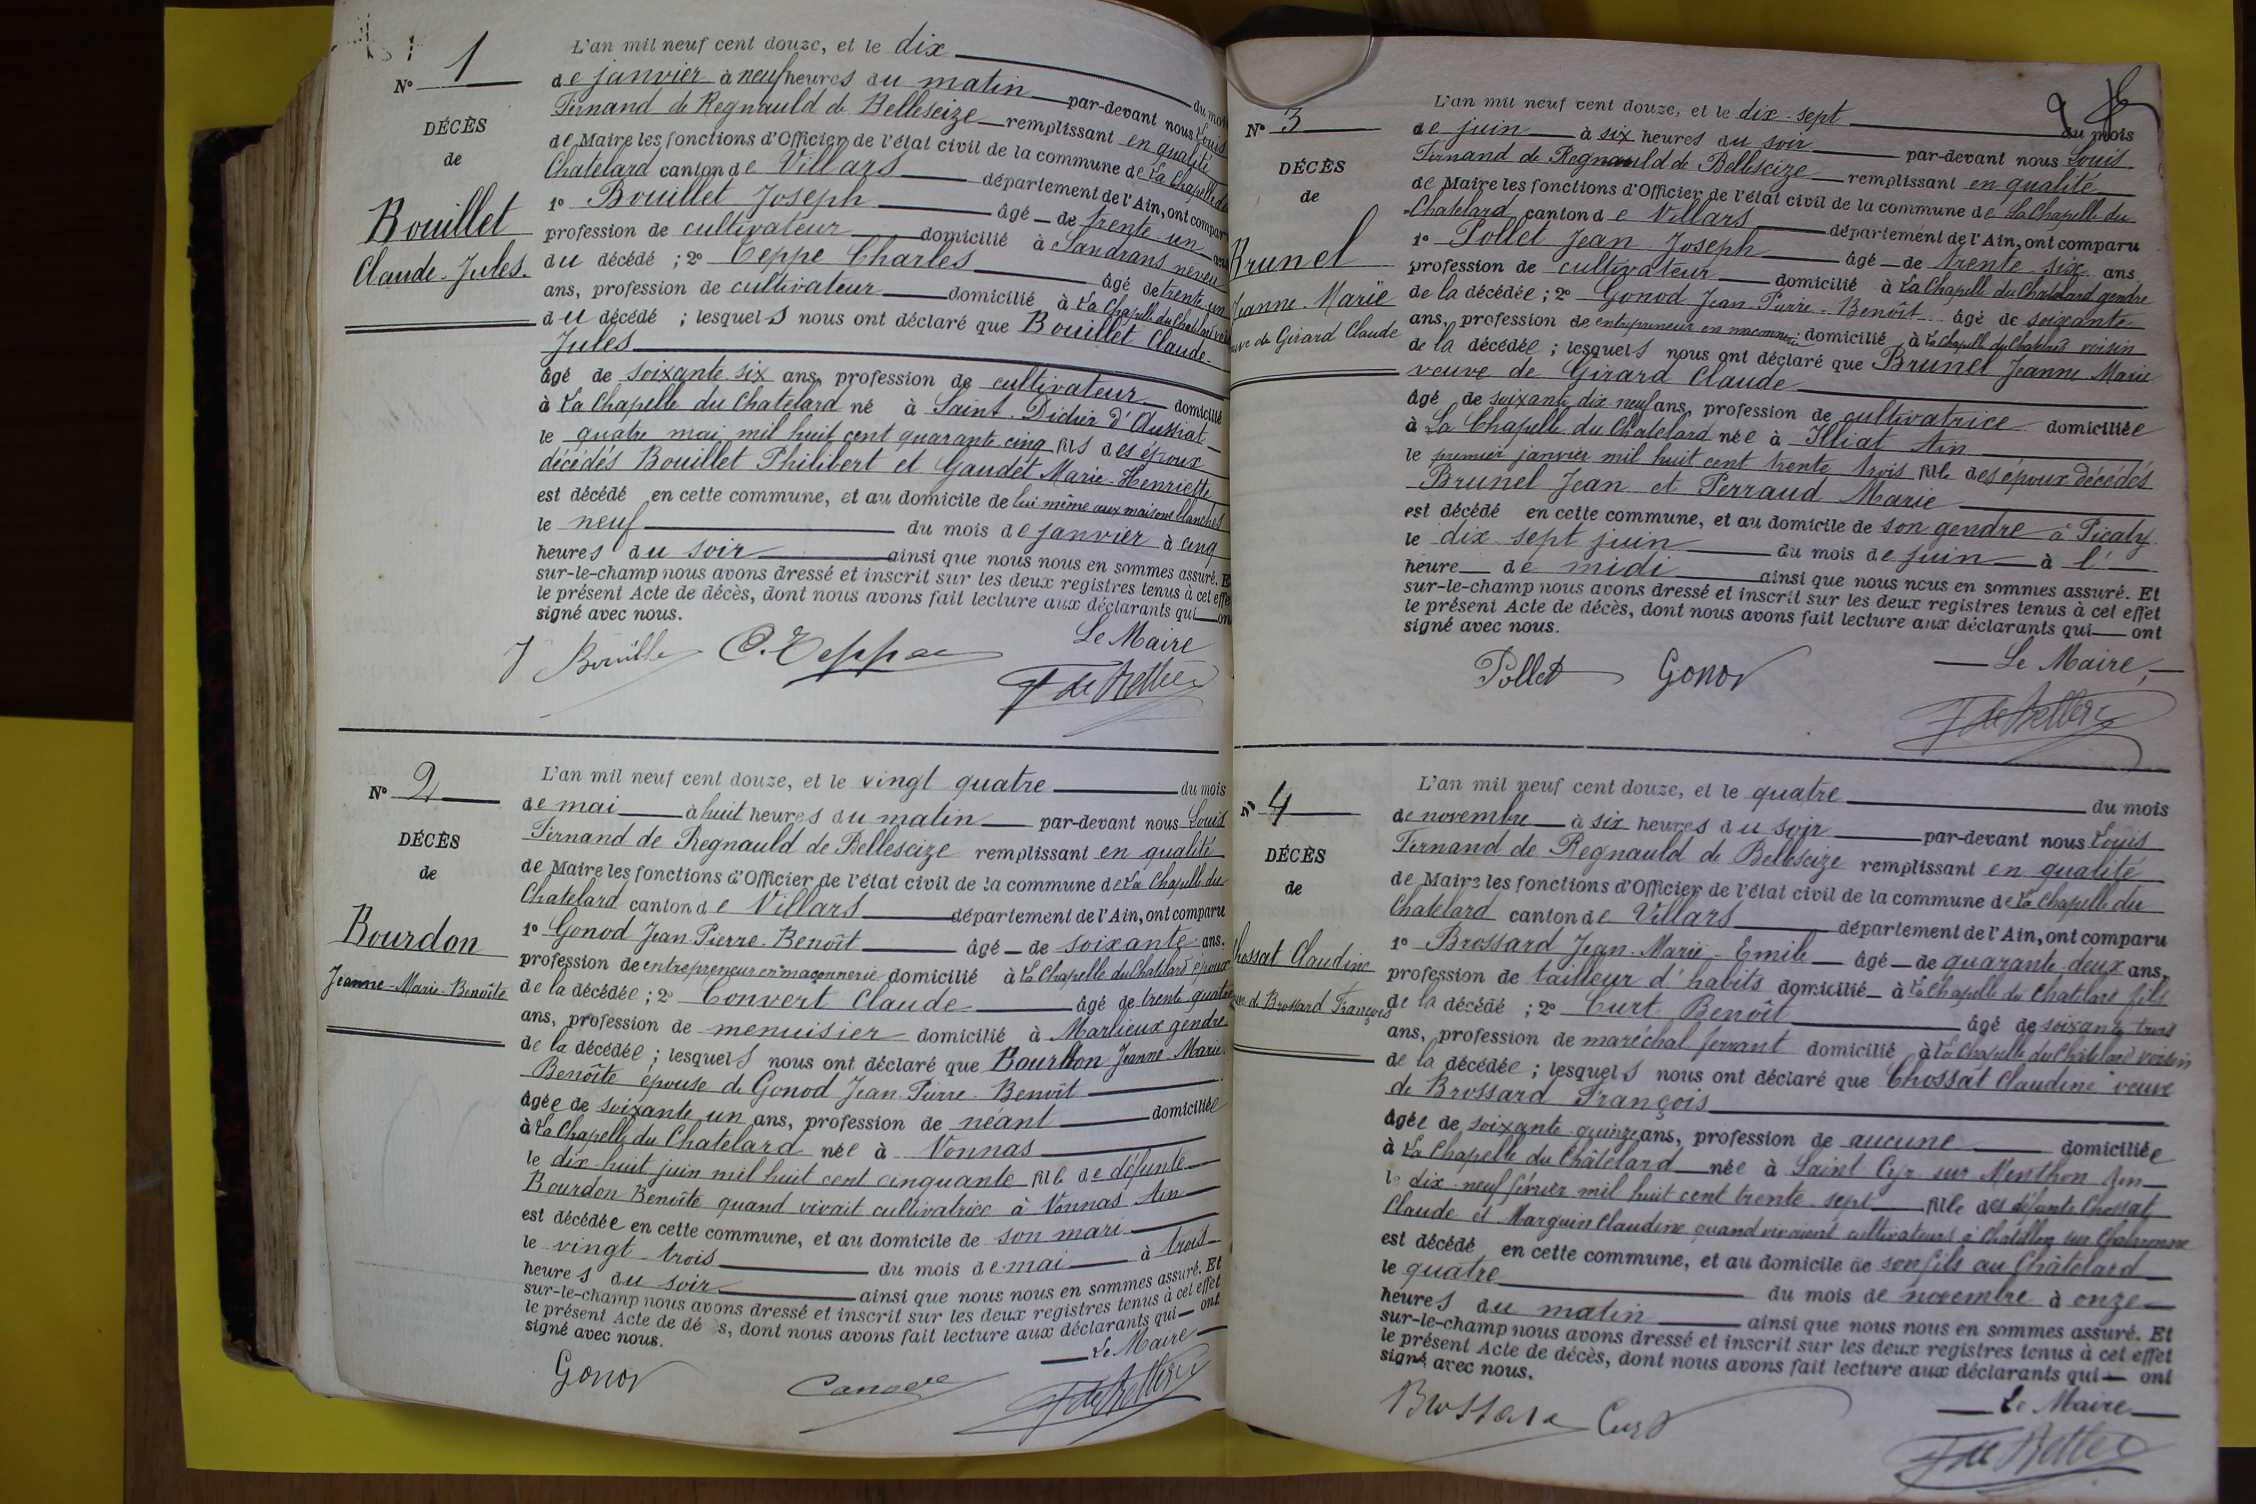 N° 1
DÉCÈS
de
Bouillet
Claude-Jules.
L'an mil neuf cent douze, et le dix du mois
de janvier à neuf heures du matin par-devant nous Louis
Fernand de Regnauld de Bellescize remplissant en qualité
de Maire les fonctions d'Officier de l'état civil de la commune de La Chapelle du
Chatelard canton de Villars département de l'Ain, ont comparu
1° Bouillet Joseph âgé de trente un ans
profession de cultivateur domicilié à Sandrans neveu
du décédé ; 2° Teppe Charles âgé de trente un
ans, profession de cultivateur domicilié à La Chapelle du Chatelard voisin
du décédé ; lesquels nous ont déclaré que Bouillet Claude-
Jules
âgé de soixante six ans, profession de cultivateur domicilié
à La Chapelle du Chatelard né à Saint-Didier d'Aussiat
le quatre mai mil huit cent quarante cinq fils des époux
décédés Bouillet Philibert et Gaudet Marie-Henriette
est décédé en cette commune, et au domicile de lui même aux maisons blanches
le neuf du mois de janvier à cinq
heures du soir ainsi que nous nous en sommes assuré. Et
sur-le-champ nous avons dressé et inscrit sur les deux registres tenus à cet effet
le présent Acte de décès, dont nous avons fait lecture aux déclarants qui ont
signé avec nous.
Le Maire
J Bouillet C. Teppe
N° 2
DÉCÈS
de
Bourdon
Jeanne-Marie-Benoîte
L'an mil neuf cent douze, et le vingt quatre du mois
de mai à huit heures du matin par-devant nous Louis
Fernand de Regnauld de Bellescize remplissant en qualité
de Maire les fonctions d'Officier de l'état civil de la commune de La Chapelle du
Chatelard canton de Villars département de l'Ain, ont comparu
1° Gonod Jean-Pierre-Benoît âgé de soixante ans.
profession de entrepreneur en maçonnerie domicilié à La Chapelle du Chatelard époux
de la décédée ; 2° Convert Claude âgé de trente quatre
ans, profession de menuisier domicilié à Marlieux gendre
de la décédée ; lesquels nous ont déclaré que Bourdon Jeanne Marie
Benoîte épouse de Gonod Jean-Pierre-Benoît
âgée de soixante un ans, profession de néant domiciliée
à La Chapelle du Chatelard née à Vonnas
le dix-huit juin mil huit cent cinquante fille de défunte
Bourdon Benoîte quand vivait cultivatrice à Vonnas Ain
est décédée en cette commune, et au domicile de son mari
le vingt trois du mois de mai à trois
heures du soir ainsi que nous nous en sommes assuré. Et
sur-le-champ nous avons dressé et inscrit sur les deux registres tenus à cet effet
le présent Acte de dé s, dont nous avons fait lecture aux déclarants qui ont
signé avec nous.
Le Maire
Gonod
N° 3
DÉCÈS
de
Brunel
Jeanne-Marie
veuve de Girard Claude
L'an mil neuf cent douze, et le dix-sept du mois
de juin à six heures du soir par-devant nous Louis
Fernand de Regnauld de Bellescize remplissant en qualité
de Maire les fonctions d'Officier de l'état civil de la commune de La Chapelle du
Chatelard canton de Villars département de l'Ain, ont comparu
1° Pollet Jean Joseph âgé de trente six ans
profession de cultivateur domicilié à La Chapelle du Chatelard gendre
de la décédée ; 2° Gonod Jean-Pierre-Benoît âgé de soixante
ans, profession de entrepreneur en maçonnerie domicilié à La Chapelle du Chatelard voisin
de la décédée ; lesquels nous ont déclaré que Brunel Jeanne Marie
veuve de Girard Claude
âgé de soixante dix neuf ans, profession de cultivatrice domiciliée
à La Chapelle du Chatelard née à Illiat Ain
le premier janvier mil huit cent trente trois fille des époux décédés
Brunel Jean et Perraud Marie
est décédé en cette commune, et au domicile de son gendre à Picaty
le dix sept juin du mois de juin à l'
heure de midi ainsi que nous nous en sommes assuré. Et
sur-le-champ nous avons dressé et inscrit sur les deux registres tenus à cet effet
le présent Acte de décès, dont nous avons fait lecture aux déclarants qui ont
signé avec nous.
Le Maire,
Pollet Gonod
N° 4
DÉCÈS
de
Chossat Claudine
veuve de Brossard François
L'an mil neuf cent douze, et le quatre du mois
de novembre à six heures du soir par-devant nous Louis
Fernand de Regnauld de Bellescize remplissant en qualité
de Maire les fonctions d'Officier de l'état civil de la commune de La Chapelle du
Chatelard canton de Villars département de l'Ain, ont comparu
1° Brossard Jean-Marie-Emile âgé de quarante deux ans,
profession de tailleur d'habits domicilié à La Chapelle du Chatelard fils
de la décédé ; 2° Curt Benoît âgé de soixante trois
ans, profession de maréchal ferrant domicilié à La Chapelle du Châtelard voisin
de la décédée ; lesquels nous ont déclaré que Chossat Claudine veuve
de Brossard François
âgée de soixante quinze ans, profession de aucune domiciliée
à La Chapelle du Châtelard née à Saint Cyr sur Menthon Ain
le dix-neuf février mil huit cent trente-sept fille des défunts Chossat
Claude et Marguin Claudine quand vivaient cultivateurs à Châtillon sur Chalaronne
est décédé en cette commune, et au domicile de son fils au Châtelard
le quatre du mois de novembre à onze
heures du matin ainsi que nous nous en sommes assuré. Et
sur-le-champ nous avons dressé et inscrit sur les deux registres tenus à cet effet
le présent Acte de décès, dont nous avons fait lecture aux déclarants qui ont
signé avec nous.
Le Maire
Brossard Curt